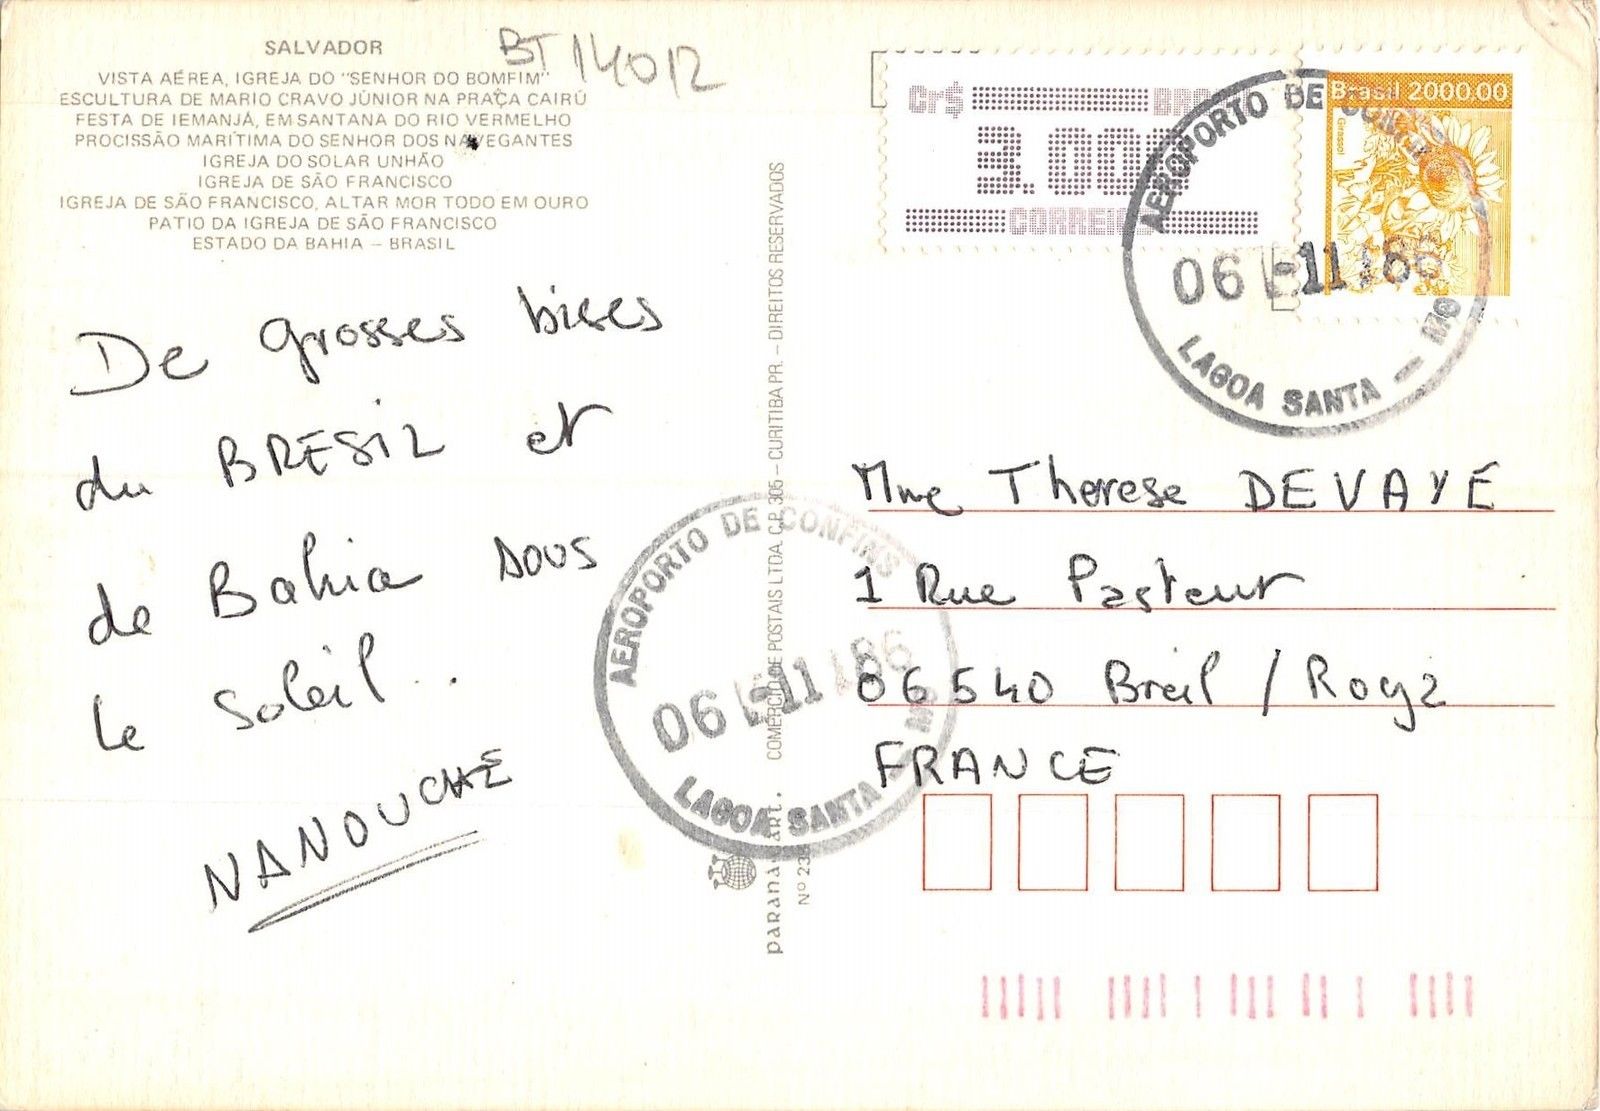 SALVADOR
VISTA AÉREA, IGREJA DO "SENHOR DO BOMFIM"
ESCULTURA DE MARIO CRAVO JÚNIOR NA PRAÇA CAIRÚ
FESTA DE IEMANJÁ, EM SANTANA DO RIO VERMELHO
PROCISSÃO MARÍTIMA DO SENHOR DOS NAVEGANTES
IGREJA DO SOLAR UNHÃO
IGREJA DE SÃO FRANCISCO
IGREJA DE SÃO FRANCISCO, ALTAR MOR TODO EM OURO
PATIO DA IGREJA DE SÃO FRANCISCO
ESTADO DA BAHIA – BRASIL
BT 14012
De grosses bises
du BRESIL et
de Bahia sous
le soleil..
NANOUCHE
COMÉRCIO DE POSTAIS LTDA. C.P. 305 – CURITIBA PR. – DIREITOS RESERVADOS
paraná-cart.
Nº 23
AEROPORTO DE CONFINS
06 11 86
LAGOA SANTA – MG
Cr$
3.00
CORREIO
Brasil 2000.00
Girassol
AEROPORTO DE CONFINS
06 11 86
LAGOA SANTA – MG
Mme Therese DEVAYE
1 Rue Pasteur
06540 Breil / Roya
FRANCE